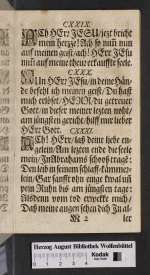 CXXIX.
ACh HErr JESU / jezt bricht
mein hertze! Ach so nim nun
auf meinen geist / ach! HErr JEsu
nim auf meine theur erkauffte seele.
CXXX.
NUn HErr JEsu / in deine Hän-
de befehl ich meinen geist / Du hast
mich erlöset / HERR du getreuer
Gott: in dieser meiner lezten noht /
am jüngsten gericht / hilff mir lieber
HErr Gott.
CXXXI.
ACh! HErr / laß deine liebe en-
gelein Am lezten ende die seele
mein / In Abrahams schooß trage:
Den leib in seinem schlaff-kämmer-
lein Gar sanfft ohn einge qual und
pein Ruhn bis am jüngsten tage:
Alsdenn vom tod erwecke mich /
Daß meine augen sehen dich In al-
M 2 ler
Herzog August Bibliothek Wolfenbüttel
Kodak